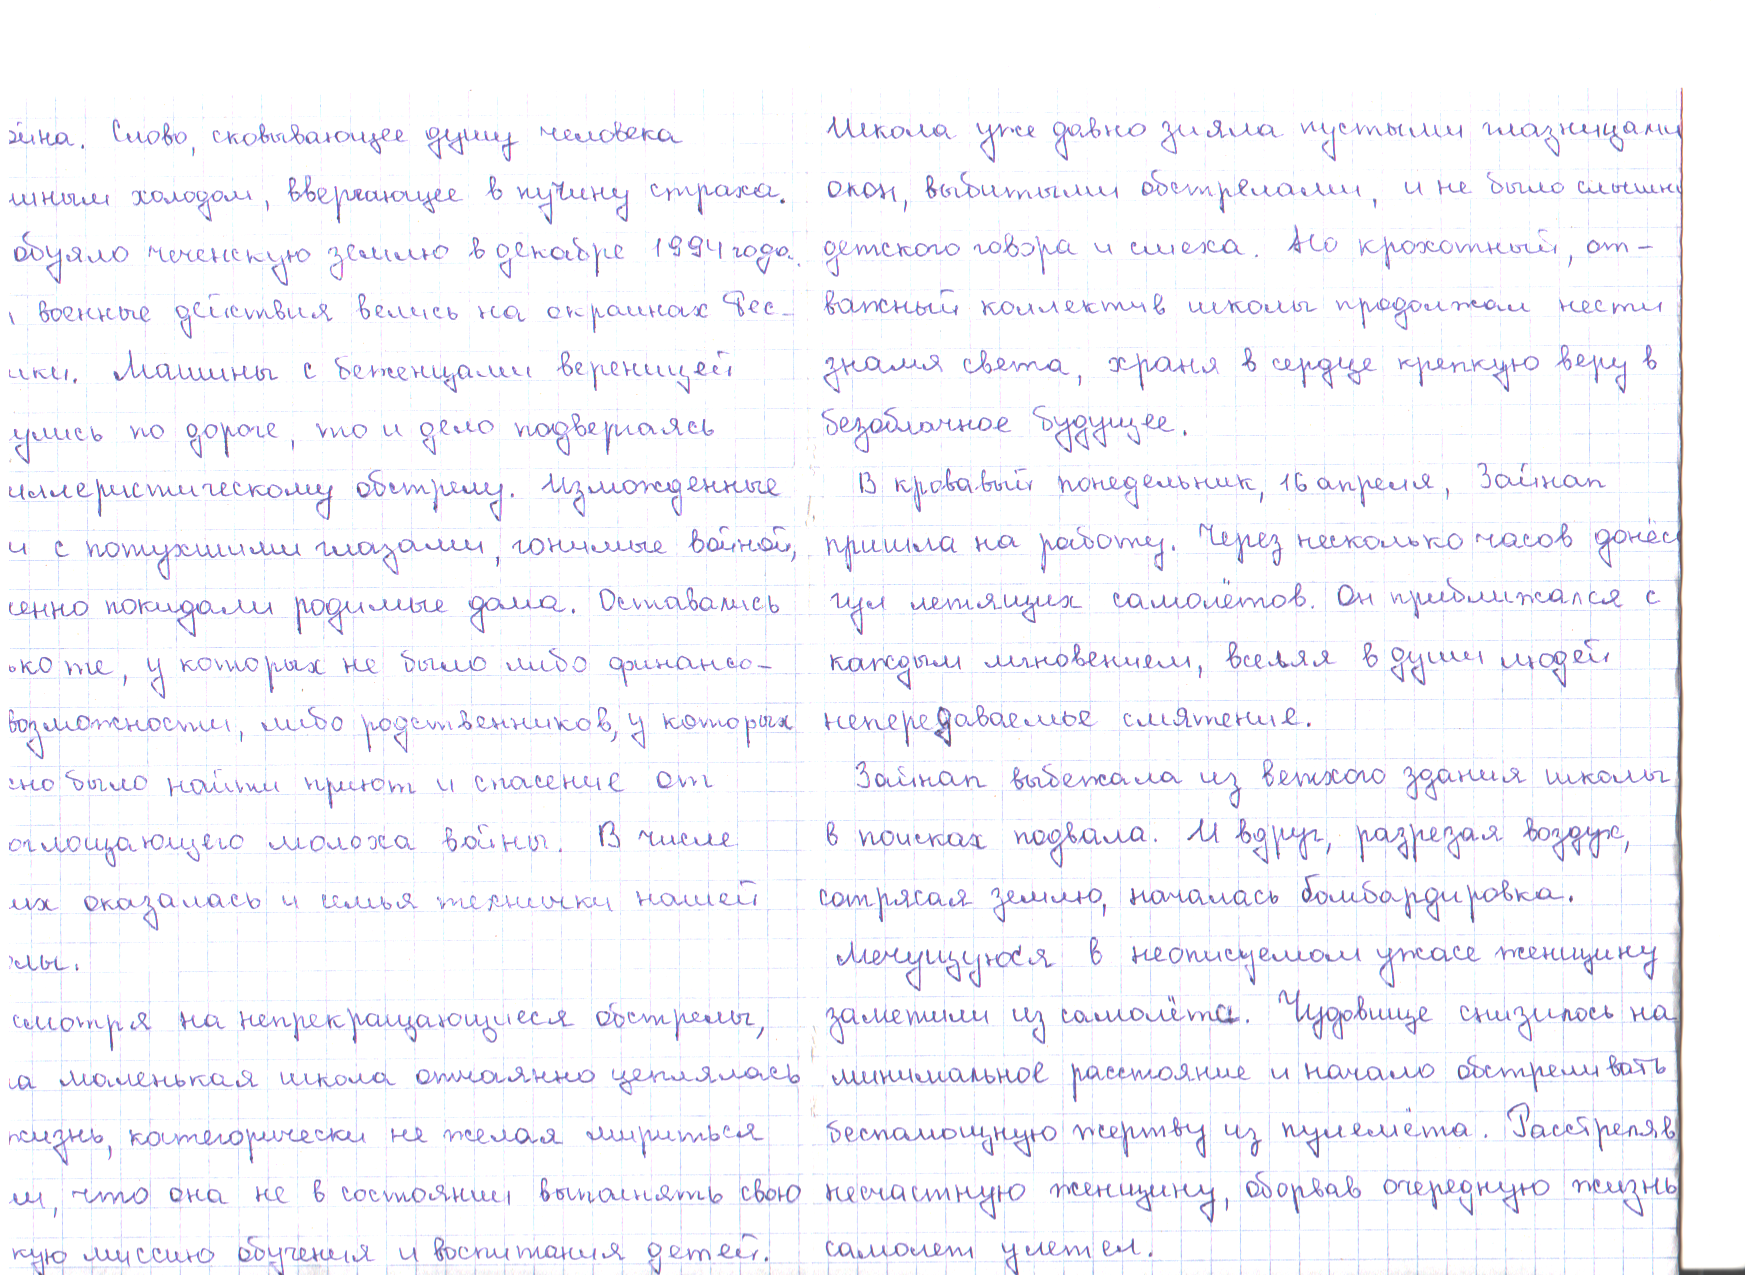 йна. Слово, сковывающее душу человека
шным холодом, ввергающее в пучину страха.
обуяло чеченскую землю в декабре 1994 года.
военные действия велись на окраинах Рес-
ики. Машины с беженцами вереницей
улись по дороге, то и дело подвергаясь
иллеристическому обстрелу. Изможденные
и с потухшими глазами, гонимые войной,
енно покидали родимые дома. Оставались
ько те, у которых не было либо финансо-
возможности, либо родственников, у которых
но было найти приют и спасение от
оглощающего молоха войны. В числе
их оказалась и семья технички нашей
лы.
смотря на непрекращающиеся обстрелы,
а маленькая школа отчаянно цеплялась
жизнь, категорически не желая мириться
м, что она не в состоянии выполнять свою
кую миссию обучения и воспитания детей.
Школа уже давно зияла пустыми глазницами
окон, выбитыми обстрелами, и не было слышно
детского говора и смеха. Но крохотный, от-
важный коллектив школы продолжал нести
знамя света, храня в сердце крепкую веру в
безоблачное будущее.
В кровавый понедельник, 16 апреля, Зайнап
пришла на работу. Через несколько часов донёс
гул летящих самолётов. Он приближался с
каждым мгновением, вселяя в души людей
непередаваемые смятение.
Зайнап выбежала из ветхого здания школы
в поисках подвала. И вдруг, разрезая воздух,
сотрясая землю, началась бомбардировка.
Мечущуюся в неописуемом ужасе женщину
заметили из самолёта. Чудовище снизилось на
минимальное расстояние и начало обстреливать
беспомощную жертву из пулемёта. Расстреляв
несчастную женщину, оборвав очередную жизнь
самолет улетел.